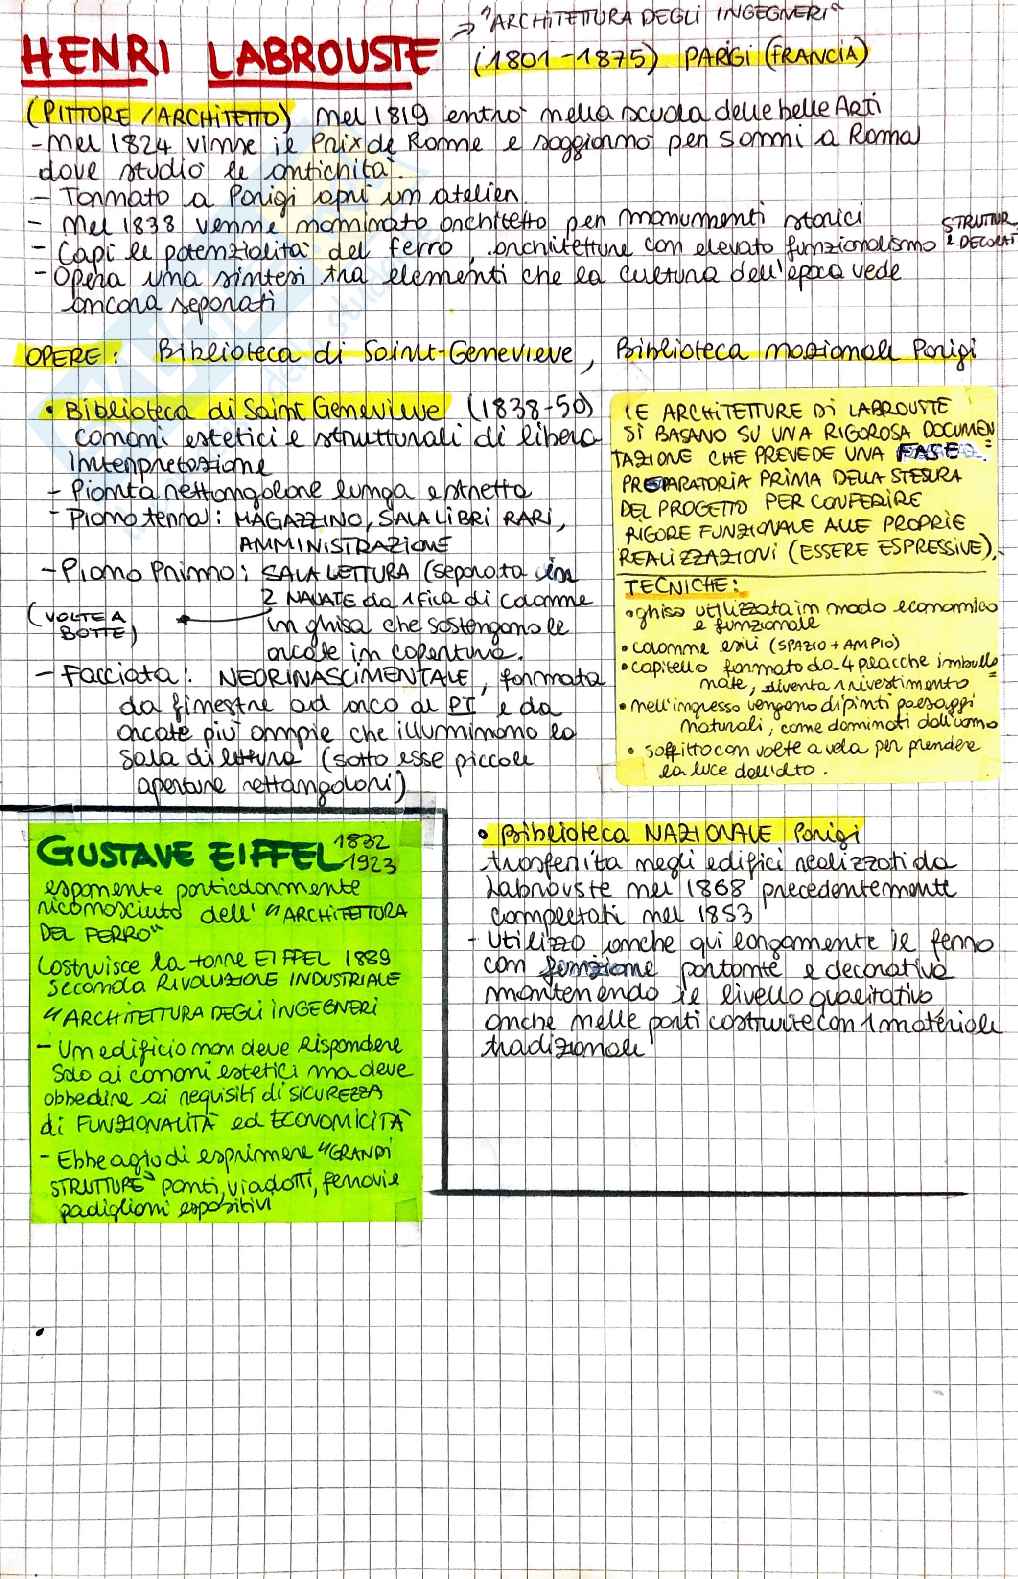 → "ARCHITETTURA DEGLI INGEGNERI"
HENRI LABROUSTE (1801-1875) PARIGI (FRANCIA)
(PITTORE / ARCHITETTO) nel 1819 entrò nella scuola delle belle Arti
- nel 1824 vinse il Prix de Rome e soggiornò per 5 anni a Roma
dove studiò le antichità.
- Tornato a Parigi aprì un atelier
- Nel 1838 venne nominato architetto per monumenti storici
- Capì le potenzialità del ferro, architetture con elevato funzionalismo STRUTTUR
E DECORAT
- Opera una sintesi tra elementi che la cultura dell'epoca vede
ancora separati
OPERE: Biblioteca di Saint-Genevieve, Biblioteca nazionale Parigi
• Biblioteca di Saint Genevieve (1838-50)
canoni estetici e strutturali di libera
interpretazione
- Pianta rettangolare lunga e stretta
- Piano terra: MAGAZZINO, SALA LIBRI RARI,
AMMINISTRAZIONE
- Piano Primo: SALA LETTURA (separata in
2 NAVATE da 1 fila di colonne
(VOLTE A
BOTTE)
in ghisa che sostengono le
arcate in copertura.
- Facciata: NEORINASCIMENTALE, formata
da finestre ad arco al PT e da
arcate più ampie che illuminano la
sala di lettura (sotto esse piccole
aperture rettangolari)
LE ARCHITETTURE DI LABROUSTE
SI BASANO SU UNA RIGOROSA DOCUMEN=
TAZIONE CHE PREVEDE UNA FASE
PREPARATORIA PRIMA DELLA STESURA
DEL PROGETTO PER CONFERIRE
RIGORE FUNZIONALE ALLE PROPRIE
REALIZZAZIONI (ESSERE ESPRESSIVE).
TECNICHE:
• ghisa utilizzata in modo economico
e funzionale
• colonne esili (SPAZIO + AMPIO)
• capitello formato da 4 placche imbullo=
nate, diventa 1 rivestimento
• nell'ingresso vengono dipinti paesaggi
naturali, come dominati dall'uomo
• soffitto con volte a vela per prendere
la luce dall'alto.
GUSTAVE EIFFEL 1832
1923
esponente particolarmente
riconosciuto dell' "ARCHITETTURA
DEL FERRO"
Costruisce la torre EIFFEL 1889
Seconda RIVOLUZIONE INDUSTRIALE
"ARCHITETTURA DEGLI INGEGNERI
- Un edificio non deve Rispondere
Solo ai canoni estetici ma deve
obbedire ai requisiti di SICUREZZA
di FUNZIONALITÀ ed ECONOMICITÀ
- Ebbe agio di esprimere "GRANDI
STRUTTURE" ponti, viadotti, ferrovie
padiglioni espositivi
• Biblioteca NAZIONALE Parigi
trasferita negli edifici realizzati da
Labrouste nel 1868 precedentemente
completati nel 1853
- Utilizzo anche qui largamente il ferro
con funzione portante e decorativa
mantenendo il livello qualitativo
anche nelle parti costruite con 1 materiale
tradizionale